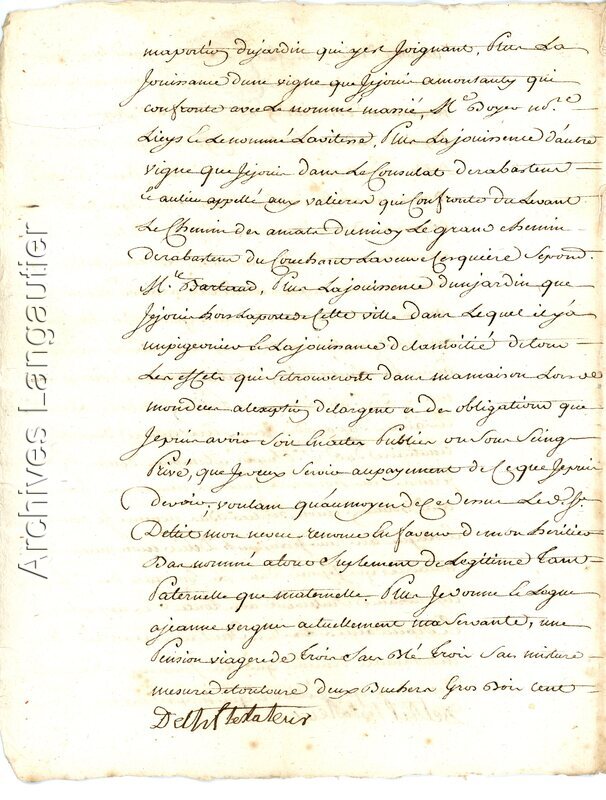 maportion dujardin qui yest Joignant, Plus La
Jouissance dune vigne que Jejouis amontauty qui
confronte avec Le nommé massié, Me Boyer nore
Lieys & Le nommé Lavitesse, Plus La jouissence d'autre
vigne que Jejouis dans Le Consulat derabasteus
et aulieu appellé aux valieres qui Confronte du Levant
Le Chemin des amats du midy Le grand chemin
derabasteus du Couchant Laveuve Cerquiere
Mr Bartaud, Plus La jouissence dunjardin que
Jejouis hors Laporte de Cette ville dans Lequel ilya
unpigeonier & La jouissance de lamoitié detous
Les effets qui setrouveront dans mamaison Lors de
mondeces alexeption delargent et des obligations que
Jepuis avoir Soit En actes Publics ou Sous Seing
Privé, que Jeveux Servir aupayement de Ce que Jepuis
devoir, voulant qu'aumoyen de Ce Dessus Le d. Sr
Deltil mon neveu renonce En faveur de mon heritier
Bas nommé atout Suplement de Legitime tant
Paternelle que maternelle. Plus Jedonne & Legue
ajeanne vergnes actuellement maservante, une
Pension viagere de trois Sacs Blé trois Sacs mixture
mesure detoulouse deux Buchers Gros Bois Cent
Deltil